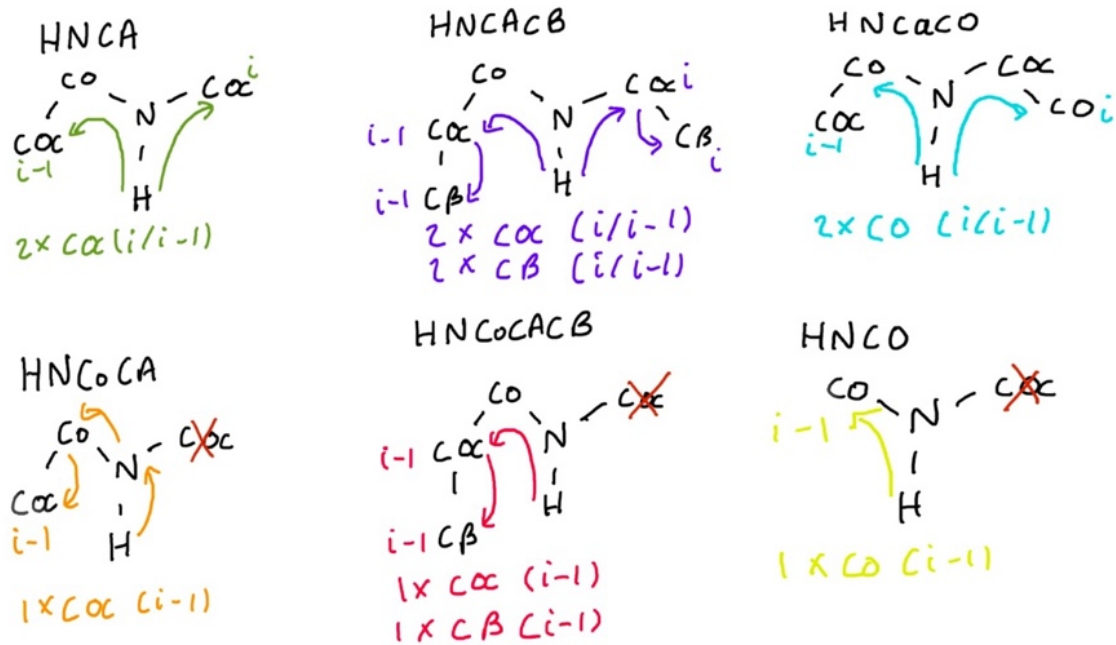 HNCA
CO
N
Cα i
Cα
i-1
H
2× Cα (i/i-1)
HNCACB
CO
N
Cα i
i-1 Cα
Cβ
i
i-1 Cβ
H
2 × Cα (i/i-1)
2 × CB (i/i-1)
HNCaCO
CO
N
Cα
CO i
Cα
i-1
H
2 × CO (i(i-1)
HNCoCA
Co
N
Cα
Cα
i-1
H
1× Cα (i-1)
HNCoCACB
CO
N
Cα
i-1 Cα
H
i-1 Cβ
1× Cα (i-1)
1 × Cβ (i-1)
HNCO
CO
N
Cα
i-1
H
1 × CO (i-1)